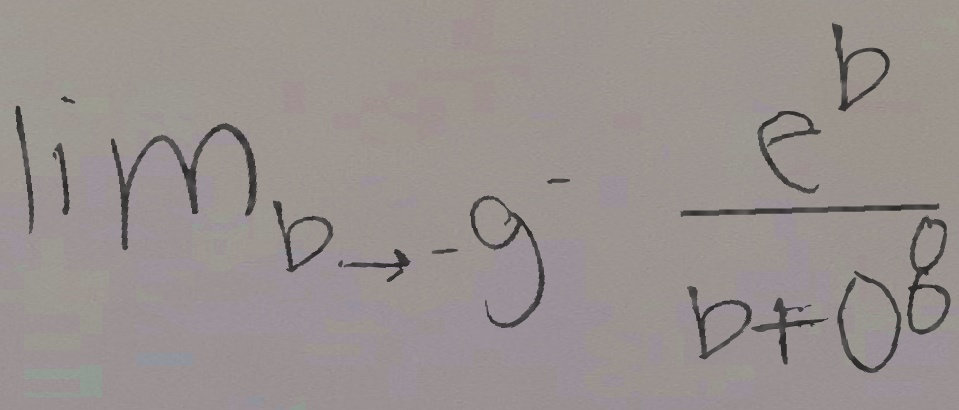 \lim_{b \to -9^-} \frac{e^b}{b+0^8}